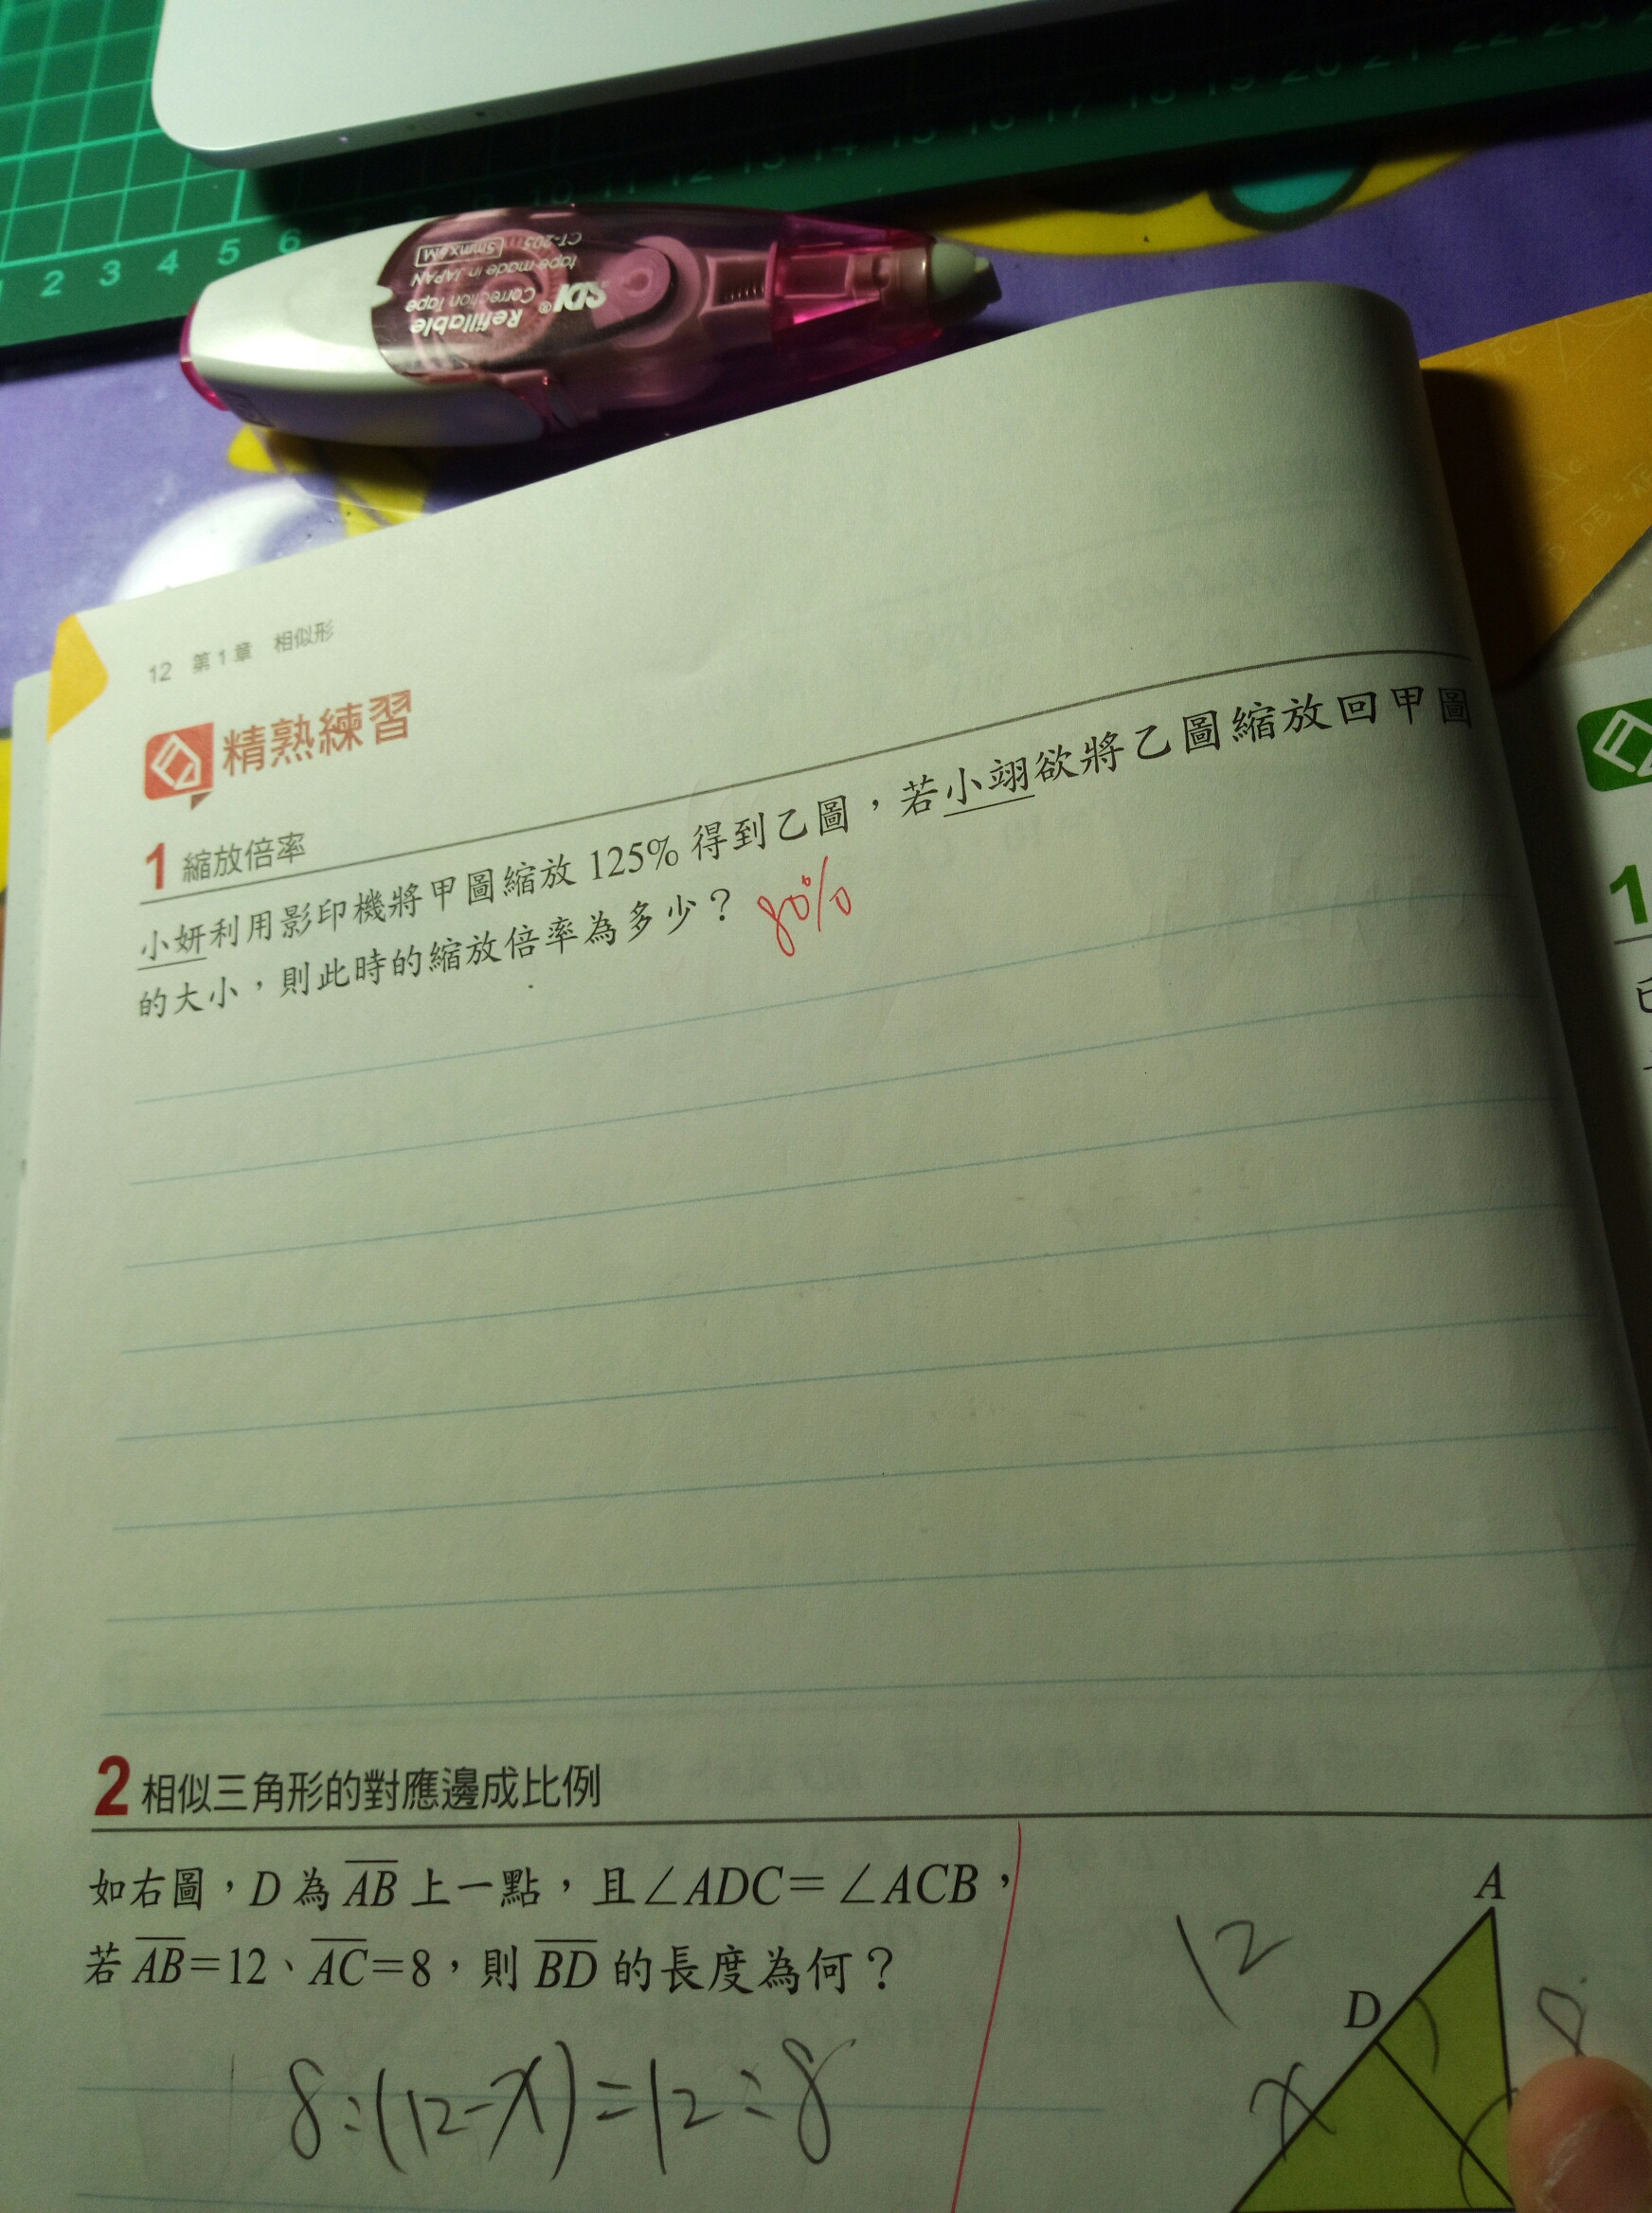 2 3 4 5 6 7 8 9 10 11 12 13 14 15 16 17 18 19 20 21 22 23
SDI® Refillable
Correction Tape
tape made in JAPAN
CT-205 5mmx6M
12 第1章 相似形
精熟練習
1 縮放倍率
小妍利用影印機將甲圖縮放 125% 得到乙圖,若小翊欲將乙圖縮放回甲圖
的大小,則此時的縮放倍率為多少? 80%
2 相似三角形的對應邊成比例
如右圖,D 為 AB 上一點,且∠ADC=∠ACB,
若 AB=12、AC=8,則 BD 的長度為何?
8:(12-x)=12:8
A
12
D
8
x
1